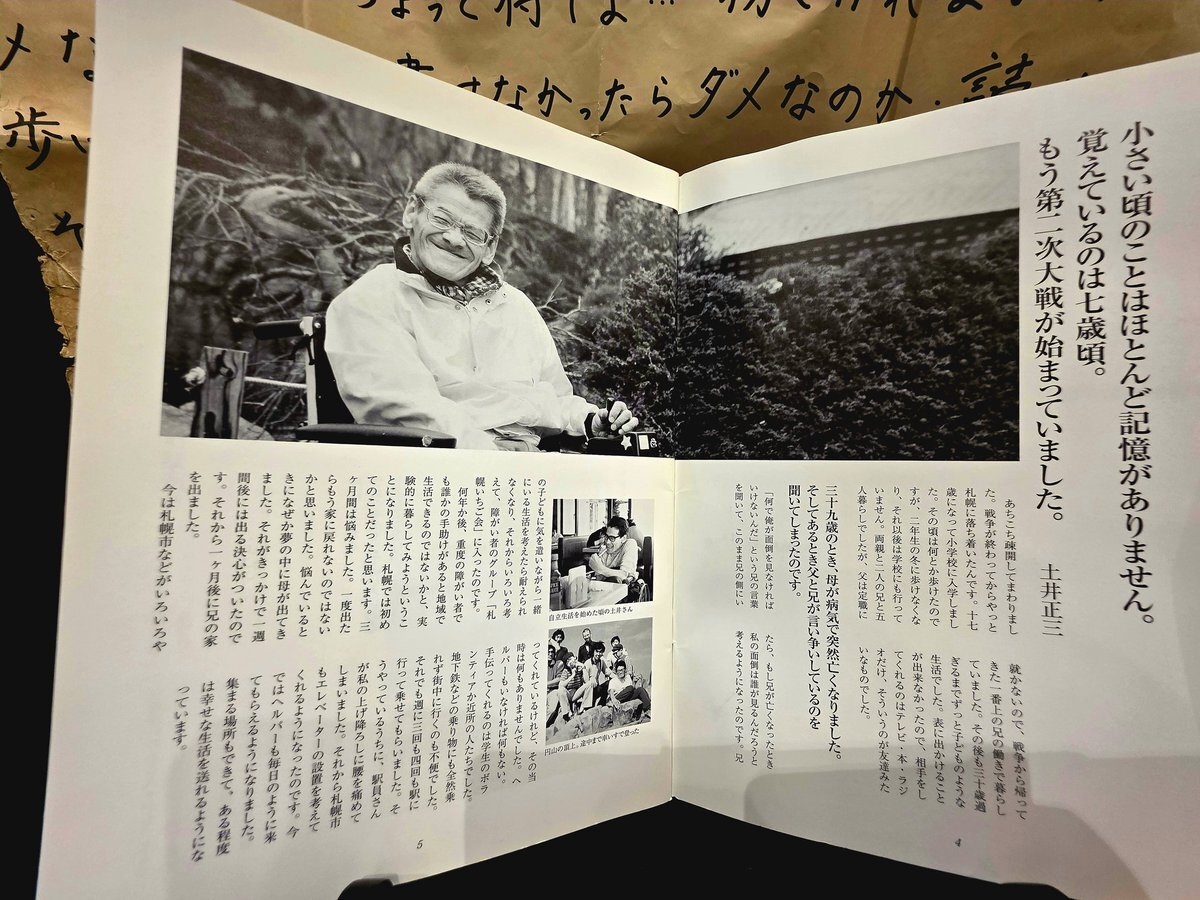 ダメなのか.
小さい頃のことはほとんど記憶がありません。
覚えているのは七歳頃。
もう第二次大戦が始まっていました。
土井正三
あちこち疎開してまわりまし
た。戦争が終わってからやっと
札幌に落ち着いたんです。十七
歳になって小学校に入学しまし
た。その頃は何とか歩けたので
すが、二年生の冬に歩けなくな
り、それ以後は学校にも行って
いません。両親と二人の兄と五
人暮らしでしたが、父は定職に
就かないので、戦争から帰って
きた一番上の兄の働きで暮らし
ていました。その後も三十歳過
ぎるまでずっと子どものような
生活でした。表に出かけること
が出来なかったので、相手をし
てくれるのはテレビ・本・ラジ
オだけ、そういうのが友達みた
いなものでした。
三十九歳のとき、母が病気で突然亡くなりました。
そしてあるとき父と兄が言い争いしているのを
聞いてしまったのです。
「何で俺が面倒を見なければ
いけないんだ」という兄の言葉
を聞いて、このまま兄の側にい
たら、もし兄が亡くなったとき
私の面倒は誰が見るんだろうと
考えるようになったのです。兄
4
の子どもに気を遣いながら一緒
にいる生活を考えたら耐えられ
なくなり、それからいろいろ考
えて、障がい者のグループ「札
幌いちご会」に入ったのです。
何年か後、重度の障がい者で
も誰かの手助けがあると地域で
生活できるのではないかと、実
験的に暮らしてみようというこ
とになりました。札幌では初め
てのことだったと思います。三
ヶ月間は悩みました。一度出た
らもう家に戻れないのではない
かと思いました。悩んでいると
きになぜか夢の中に母が出てき
ました。それがきっかけで一週
間後には出る決心がついたので
す。それから一ヶ月後に兄の家
を出ました。
今は札幌市などがいろいろや
ってくれているけれど、その当
時は何もありませんでした。ヘ
ルパーもいなければ何もない。
手伝ってくれるのは学生のボラ
ンティアか近所の人たちでした。
地下鉄などの乗り物にも全然乗
れず街中に行くのも不便でした。
それでも週に三回も四回も駅に
行って乗せてもらいました。そ
うやっているうちに、駅員さん
が私の上げ降ろしに腰を痛めて
しまいました。それから札幌市
もエレベーターの設置を考えて
くれるようになったのです。今
ではヘルパーも毎日のように来
てもらえるようになりました。
集まる場所もできて、ある程度
は幸せな生活を送れるようにな
っています。
自立生活を始めた頃の土井さん
円山の頂上。途中まで車いすで登った
5